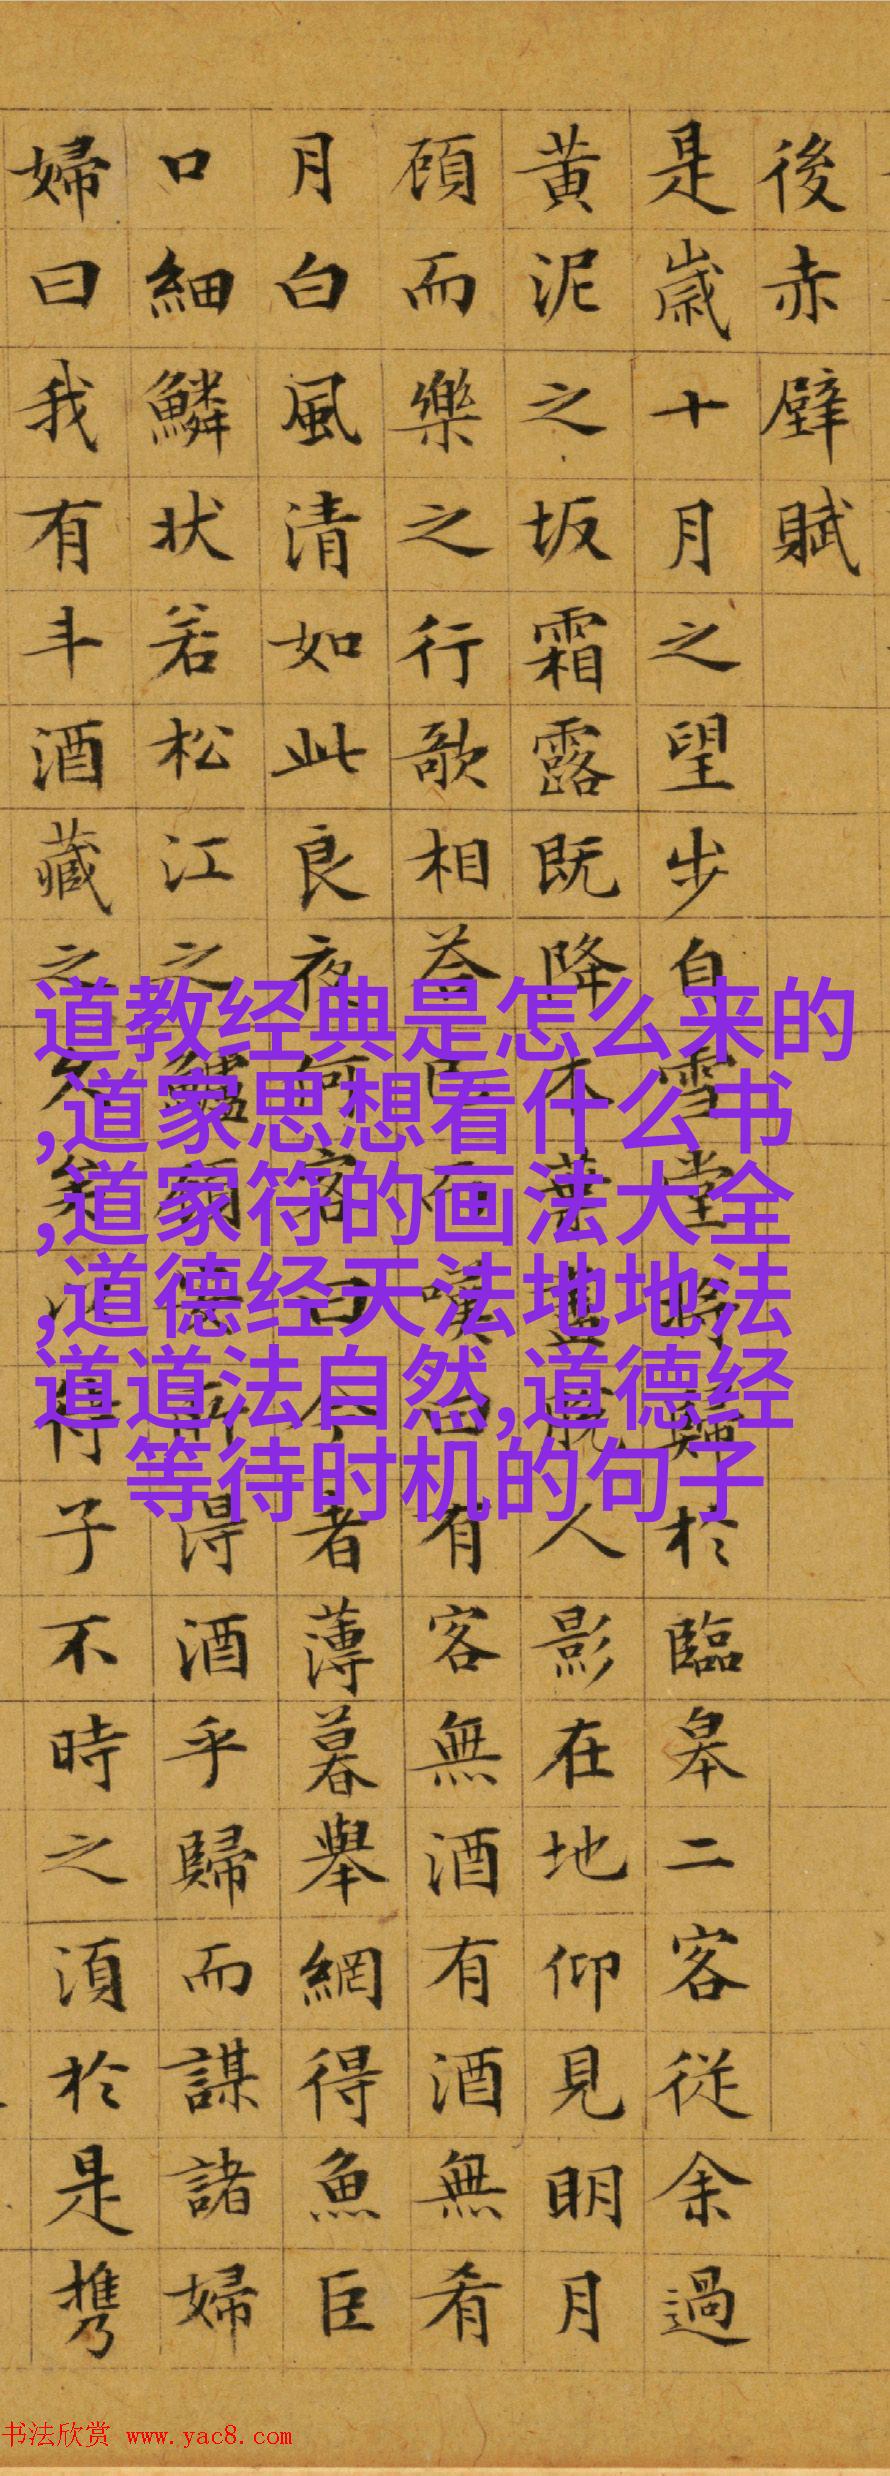 後赤壁賦
是歲十月之望步自雪堂將歸於臨皋二客從余過
黃泥之坂霜露既降木葉盡脫人影在地仰見明月
頋而樂之行歌相荅已而嘆曰有客無酒有酒無肴
月白風清如此良夜何客曰今者薄暮舉網得魚巨
口細鱗状若松江之鱸頋安所得酒乎歸而謀諸婦
婦曰我有斗酒藏之久矣以待子不時之須於是携
道教经典是怎么来的
,道家思想看什么书
,道家符的画法大全
,道德经天法地地法
道道法自然,道德经
等待时机的句子
书法欣赏 www.yac8.com